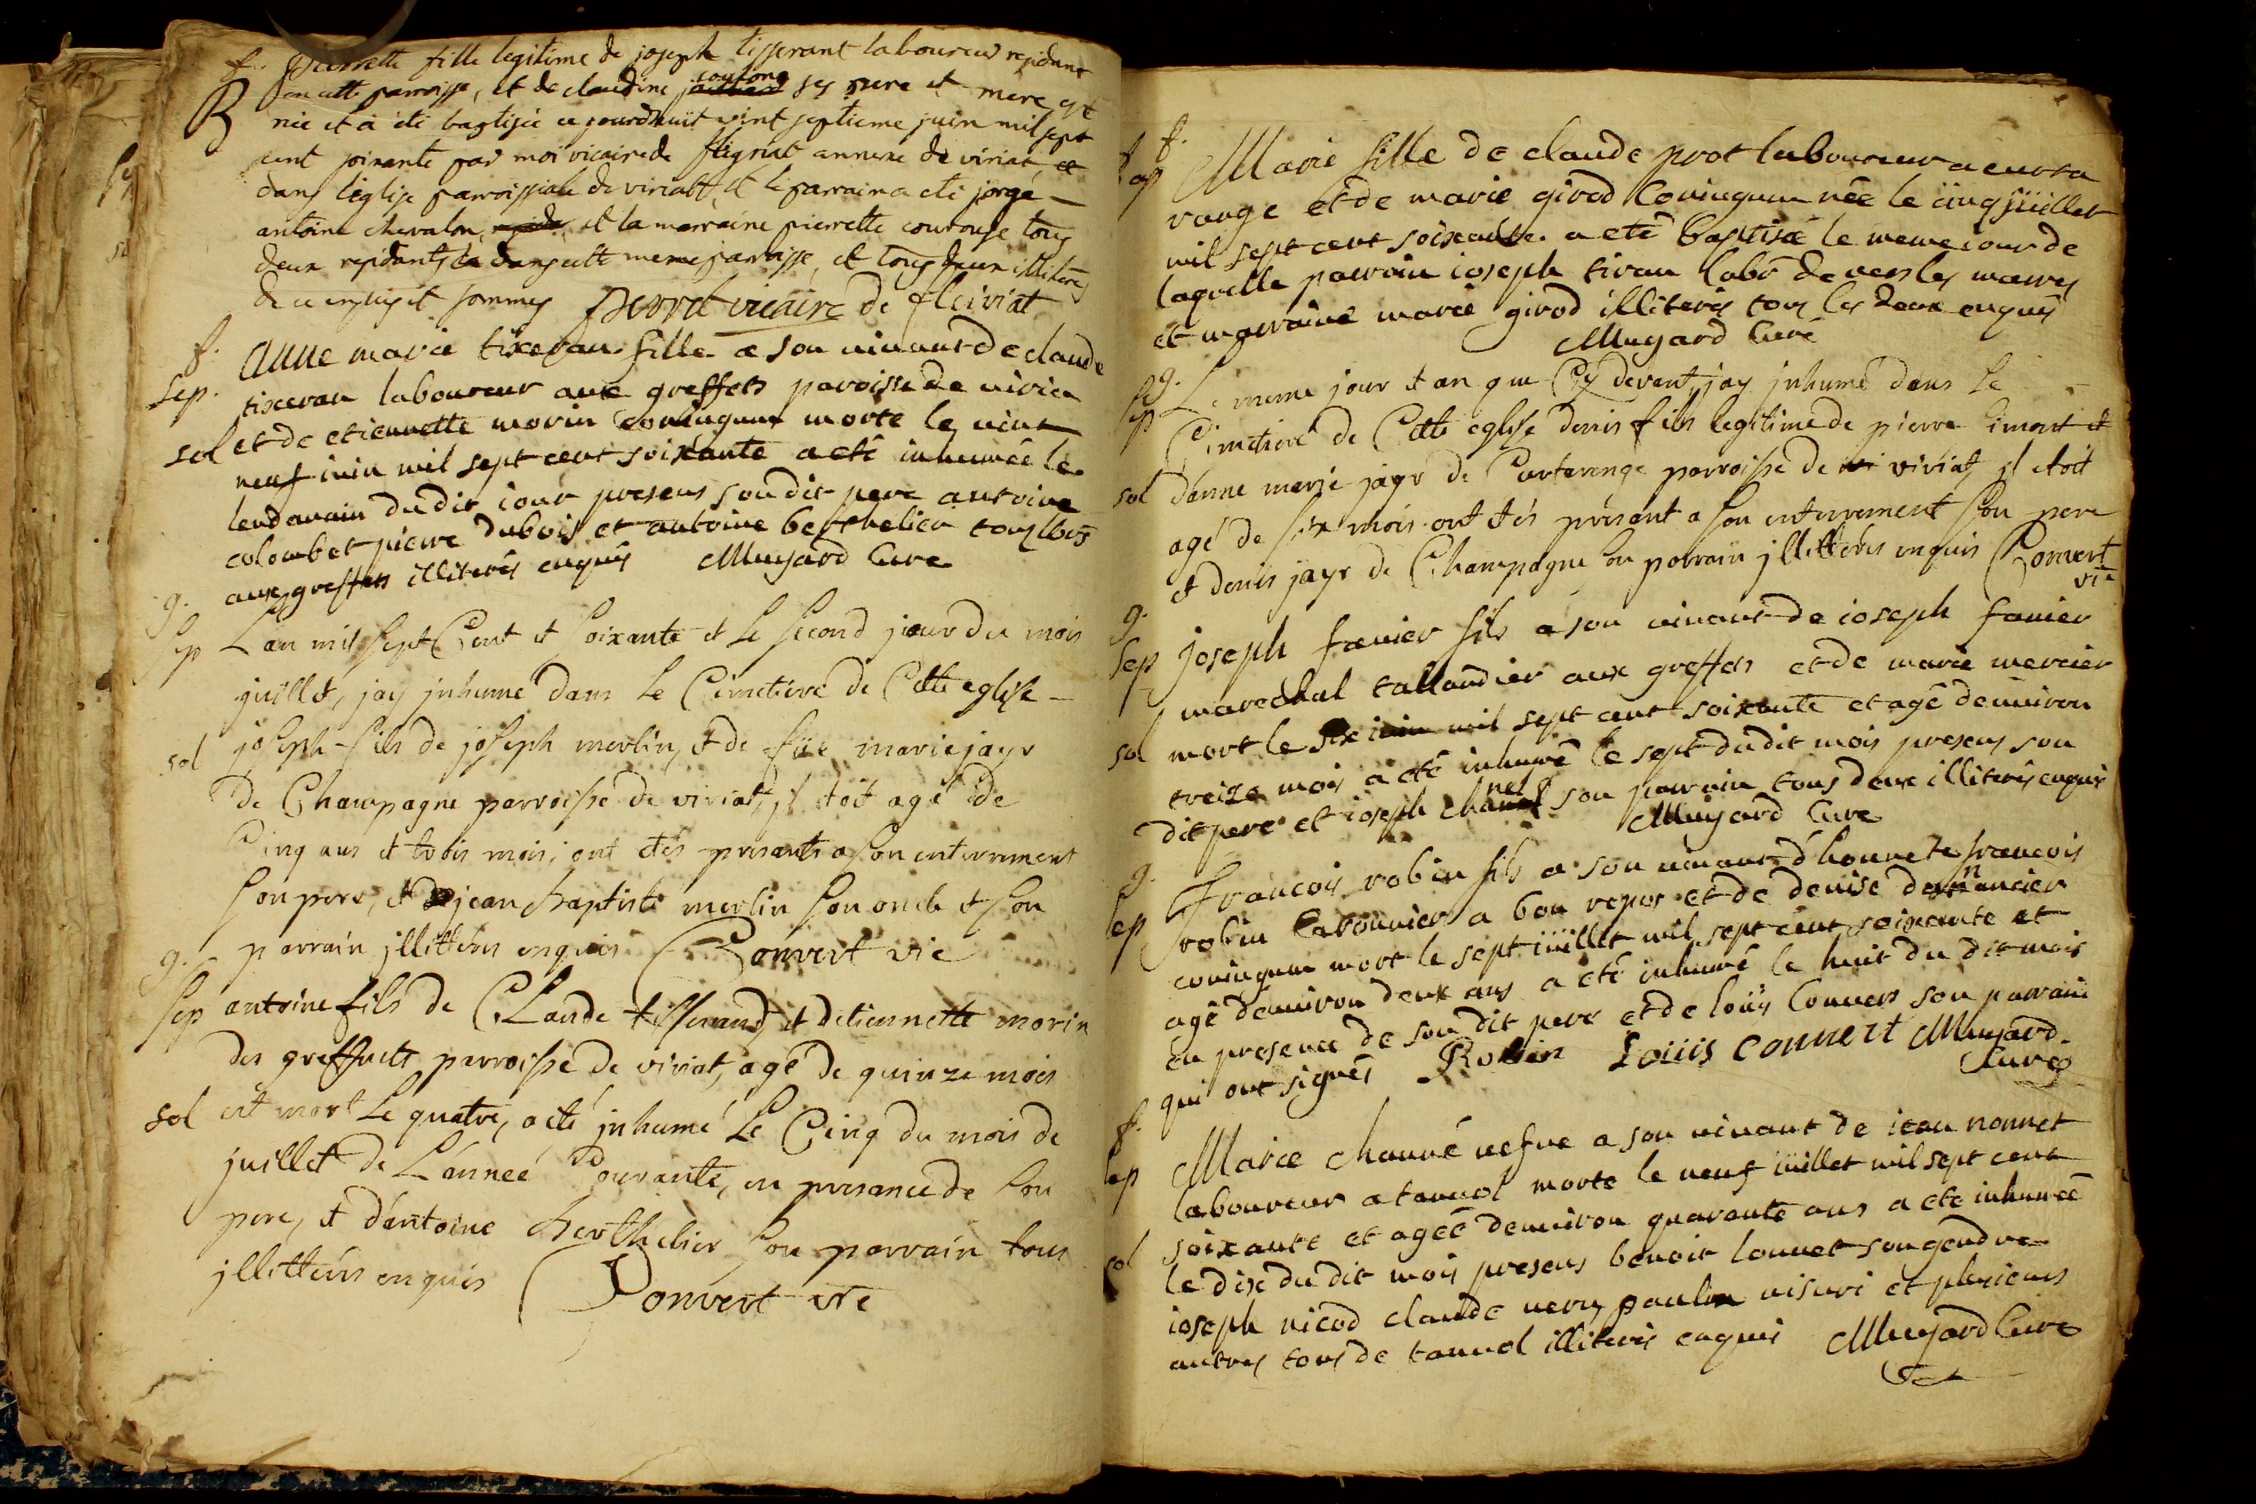 f. pierrette fille legitime de joseph tisserant laboureur residant
B en cette parroisse, et de claudine couronge ses pere et mere, est
née et à été baptisée ce jourdhuit vint septieme juin mil sept
cent soixante par moi vicaire de fleyriat annexe de viriat, et
dans l'eglise parroissiale de viriatt, et le parrain a eté jorge
antoine chevalon, et la marraine pierrette couronge tous
deux residants dans cette meme parroisse, et tous deux illiterés
de ce enquis et sommes perret vicaire de fleiriat
f. anne marie tixeran fille a son vivant de claude
sep. tixeran laboureur aux greffets paroisse de viria
sol et de etiennette morin coniugum morte le vint
neuf iuin mil sept cent soixante a eté inhumée le
lendemain du dit iour presens son dit pere antoine
colombet pierre dubois et antoine berthelier tous
aux greffets illiterés enquis Muyard Curé
g. Lan mil sept Cent et soixante et Le second jour du mois
sep juillet, jay jnhumé dans Le Cimetiere de Cette eglise
sol joseph fils de joseph merlin, et de füe marie jayr
de Champagne parroisse de viriat, jl etoit agé de
Cinq ans et trois mois; ont etés presants a son enterrement
son pere, et jean baptiste merlin son oncle et son
parrain jllitterés enquis Convert vic
g.
sep antoine fils de CLaude tisserand, et detiennette morin
des greffects parroisse de viriat, agé de quinze mois
sol est mort Le quatre, a eté jnhumé Le Cinq du mois de
juillet de L'année Courante, en presance de son
pere, et d'antoine berthelier son parrain tous
jllitterés enquis Convert vre
f. Marie fille de claude prot laboureur a curta
bap range et de marie girod Coniugum née le cinq jüillet
mil sept cent soixante a eté baptisé le meme iour de
laquelle parrain ioseph tiran labr de vers les mares
et marraine marie girod illiterés tous les deux enquis
Muyard Curé
g. Le meme jour et an que Cy devent, jay jnhumé dans Le
sep Cimetiere de Cette eglise denis fils legitime de pierre et
sol danne marie jayr de Curtarenge parroisse de viriat, jl etoit
agé de six mois ont etés présant a son enterrement son pere
et denis jayr de Champagne son parrain jllitterés enquis Convert
vic
g.
sep joseph favier fils a son vivant de ioseph favier
marechal tallandier aux greffets et de marie mercier
sol mort le six iuin mil sept cent soixante et agé denviron
treize mois a eté inhumé le sept du dit mois presens son
dit pere et ioseph chanel son parrain tous deux illiterés enquis
Muyard Cure
g. François robin fils a son vivant d'honnete francois
sep robin Cabonnier a bon repos et de denise
coniugum mort le sept iüillet mil sept cent soixante et
agé denviron deux ans a eté inhumé le huit du dit mois
en presence de son dit pere et de loüis Convers son parrain
qui ont signés Robin Loüis Convert Muyard
Cure
f.
sep Marie channé vefve a son vivant de iean nonnet
laboureur a tannol morte le neuf iüillet mil sept cent
sol soixante et agéé denviron quarante ans a eté inhuméé
le dix du dit mois presens benoit lonnet son gendre
ioseph nicod claude very paulin et plusieurs
autres tous de tannol illiterés enquis Muyard Cure